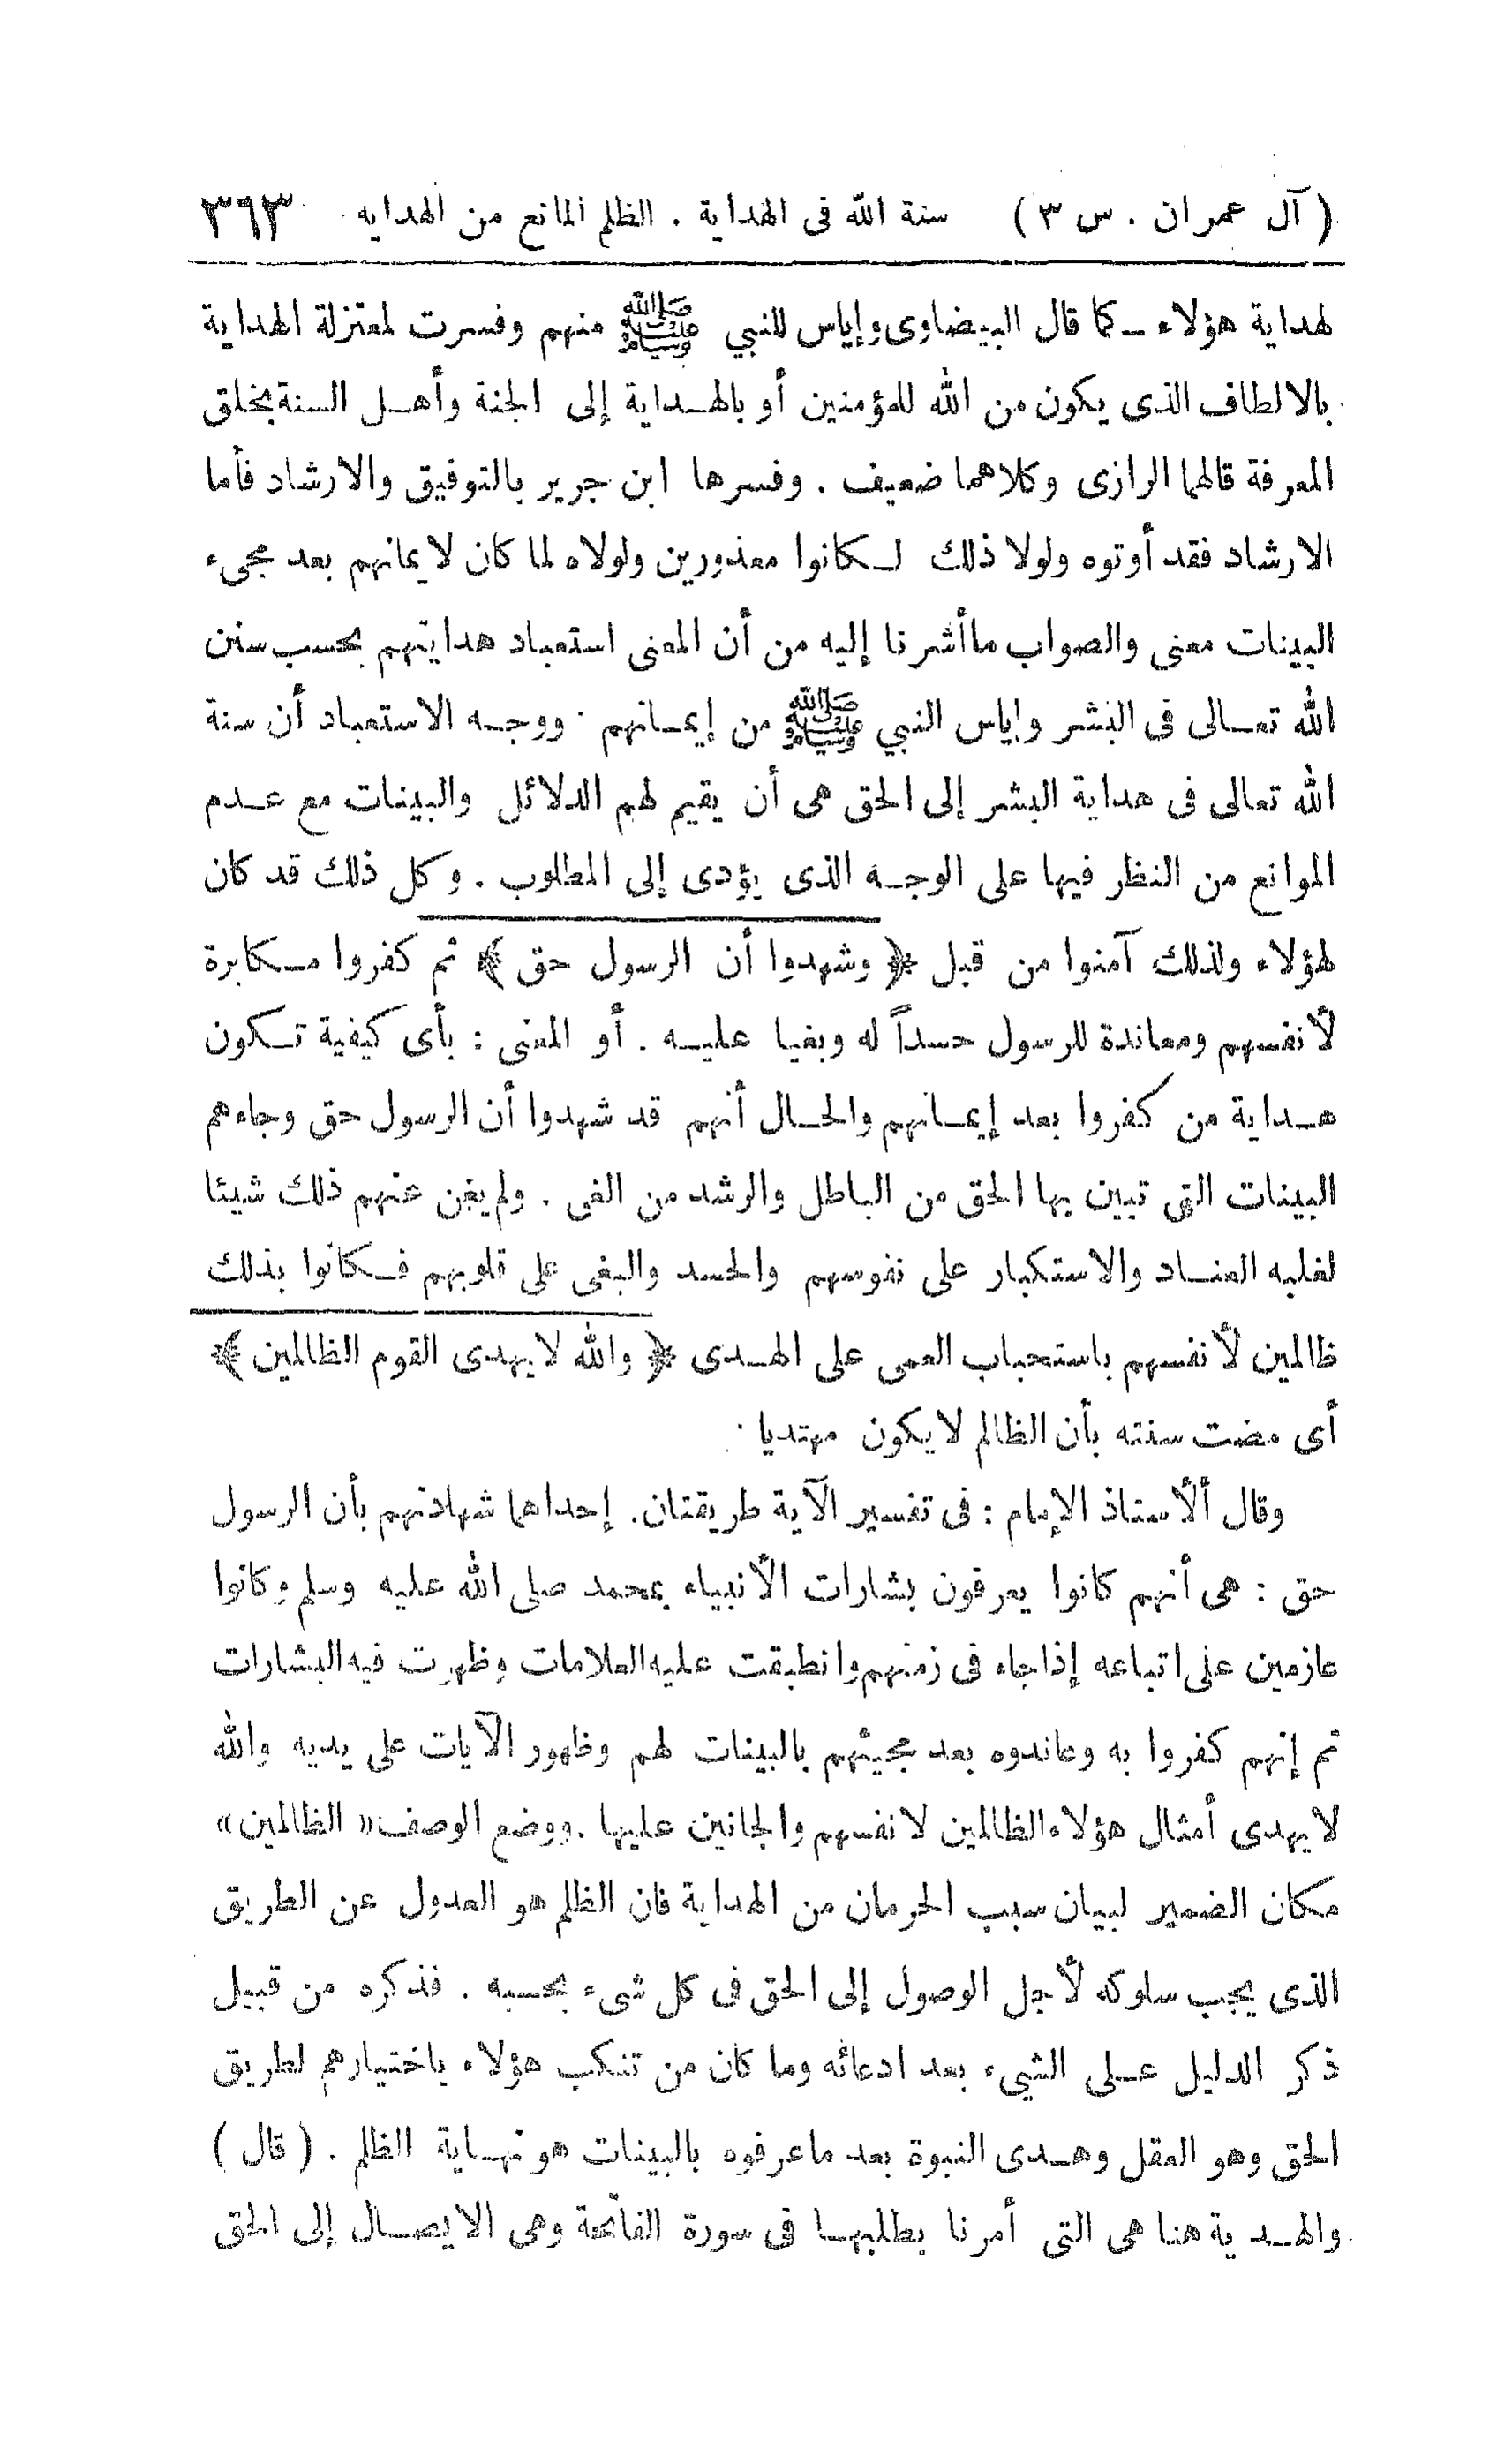 ( آل عمران . س ٣ ) سنة الله فى الهداية . الظلم المانع من الهدايه ٣٦٣
لهداية هؤلاء ــ كما قال البيضاوى وإياس للنبي ﷺ منهم وفسرت لمعتزلة الهداية
بالالطاف الذى يكون من الله للمؤمنين أو بالهداية إلى الجنة وأهل السنة بخلق
المعرفة قالهما الرازى وكلاهما ضعيف . وفسرها ابن جرير بالتوفيق والارشاد فأما
الارشاد فقد أوتوه ولولا ذلك لكانوا معذورين ولولاه لما كان لايمانهم بعد مجىء
البينات معنى والصواب ماأشرنا إليه من أن المعنى استعباد هدايتهم بحسب سنن
الله تعالى فى البشر وإياس النبي ﷺ من إيمانهم . ووجه الاستعباد أن سنة
الله تعالى فى هداية البشر إلى الحق هى أن يقيم لهم الدلائل والبينات مع عدم
الموانع من النظر فيها على الوجه الذى يؤدى إلى المطلوب . وكل ذلك قد كان
لهؤلاء ولذلك آمنوا من قبل ﴿ وشهدوا أن الرسول حق ﴾ ثم كفروا مكابرة
لأنفسهم ومعاندة للرسول حسداً له وبغيا عليه . أو المعنى : بأى كيفية تكون
هداية من كفروا بعد إيمانهم والحال أنهم قد شهدوا أن الرسول حق وجاءهم
البينات التى تبين بها الحق من الباطل والرشد من الغى . ولم يغن عنهم ذلك شيئا
لغلبه العناد والاستكبار على نفوسهم والحسد والبغى على قلوبهم فكانوا بذلك
ظالمين لأنفسهم باستحباب العمى على الهدى ﴿ والله لايهدى القوم الظالمين ﴾
أى مضت سنته بأن الظالم لايكون مهتديا .
وقال ألأستاذ الإمام : فى تفسير الآية طريقتان. إحداهما شهادتهم بأن الرسول
حق : هى أنهم كانوا يعرفون بشارات الأنبياء بمحمد صلى الله عليه وسلم وكانوا
عازمين على اتباعه إذا جاء فى زمنهم وانطبقت عليه العلامات وظهرت فيه البشارات
ثم إنهم كفروا به وعاندوه بعد مجيئهم بالبينات لهم وظهور الآيات على يديه والله
لايهدى أمثال هؤلاء الظالمين لانفسهم والجانين عليها .ووضع الوصف « الظالمين»
مكان الضمير لبيان سبب الحرمان من الهداية فان الظلم هو العدول عن الطريق
الذى يجب سلوكه لأجل الوصول إلى الحق فى كل شىء بحسبه . فذكره من قبيل
ذكر الدليل على الشيء بعد ادعائه وما كان من تنكب هؤلاء باختيارهم لطريق
الحق وهو العقل وهدى النبوة بعد ماعرفوه بالبينات هو نهاية الظلم . ( قال )
والهد ية هنا هى التى أمرنا بطلبها فى سورة الفاتحة وهى الايصال إلى الحق